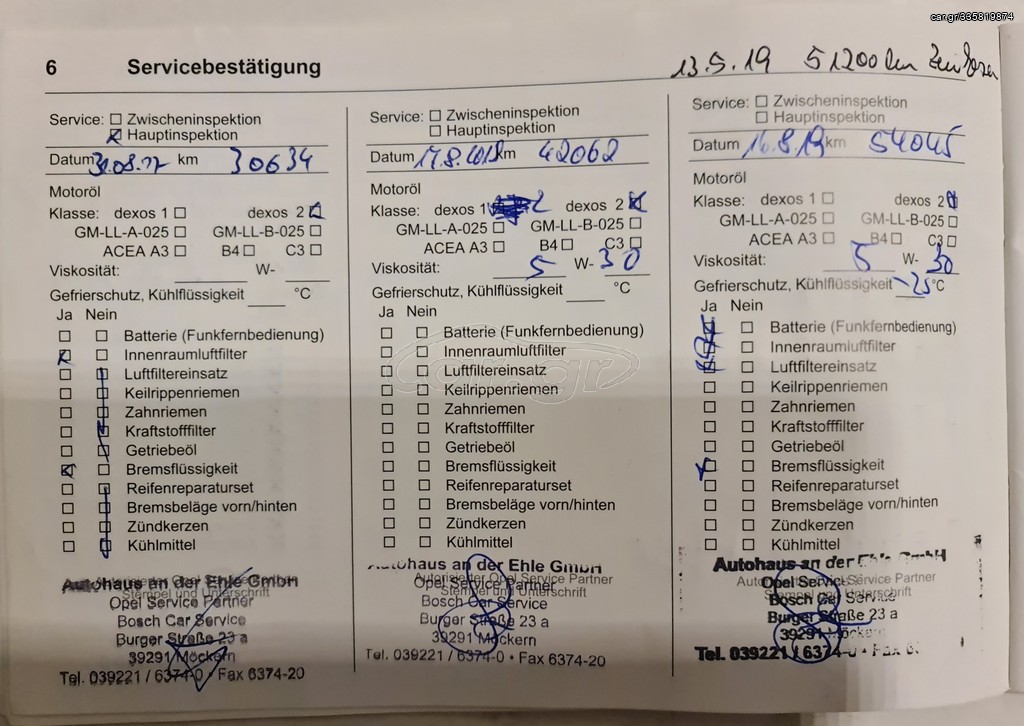 car.gr/335819874
6 Servicebestätigung
13.5.19 51200 km
Service: Zwischeninspektion
Hauptinspektion
Datum 30.08.17 km 30634
Motoröl
Klasse: dexos 1 dexos 2
GM-LL-A-025 GM-LL-B-025
ACEA A3 B4 C3
Viskosität: W-
Gefrierschutz, Kühlflüssigkeit °C
Ja Nein
Batterie (Funkfernbedienung)
Innenraumluftfilter
Luftfiltereinsatz
Keilrippenriemen
Zahnriemen
Kraftstofffilter
Getriebeöl
Bremsflüssigkeit
Reifenreparaturset
Bremsbeläge vorn/hinten
Zündkerzen
Kühlmittel
Autohaus an der Ehle GmbH
Stempel und Unterschrift
Opel Service Partner
Bosch Car Service
Burger Straße 23 a
39291 Möckern
Tel. 039221 / 6374-0 • Fax 6374-20
Service: Zwischeninspektion
Hauptinspektion
Datum 17.8.2018 km 42062
Motoröl
Klasse: dexos 1 dexos 2
GM-LL-A-025 GM-LL-B-025
ACEA A3 B4 C3
Viskosität: 5 W- 30
Gefrierschutz, Kühlflüssigkeit °C
Ja Nein
Batterie (Funkfernbedienung)
Innenraumluftfilter
Luftfiltereinsatz
Keilrippenriemen
Zahnriemen
Kraftstofffilter
Getriebeöl
Bremsflüssigkeit
Reifenreparaturset
Bremsbeläge vorn/hinten
Zündkerzen
Kühlmittel
Autohaus an der Ehle GmbH
Autorisierter Opel Service Partner
Opel Service Partner
Stempel und Unterschrift
Bosch Car Service
Burger Straße 23 a
39291 Möckern
Tel. 039221 / 6374-0 • Fax 6374-20
Service: Zwischeninspektion
Hauptinspektion
Datum 16.8.19 km 54045
Motoröl
Klasse: dexos 1 dexos 2
GM-LL-A-025 GM-LL-B-025
ACEA A3 B4 C3
Viskosität: 5 W- 30
Gefrierschutz, Kühlflüssigkeit -25 °C
Ja Nein
Batterie (Funkfernbedienung)
Innenraumluftfilter
Luftfiltereinsatz
Keilrippenriemen
Zahnriemen
Kraftstofffilter
Getriebeöl
Bremsflüssigkeit
Reifenreparaturset
Bremsbeläge vorn/hinten
Zündkerzen
Kühlmittel
Autohaus an der Ehle GmbH
Autorisierter Opel Service Partner
Opel Service
Stempel und Unterschrift
Bosch Car Service
Burger Straße 23 a
39291 Möckern
Tel. 039221 / 6374-0 • Fax
car.gr